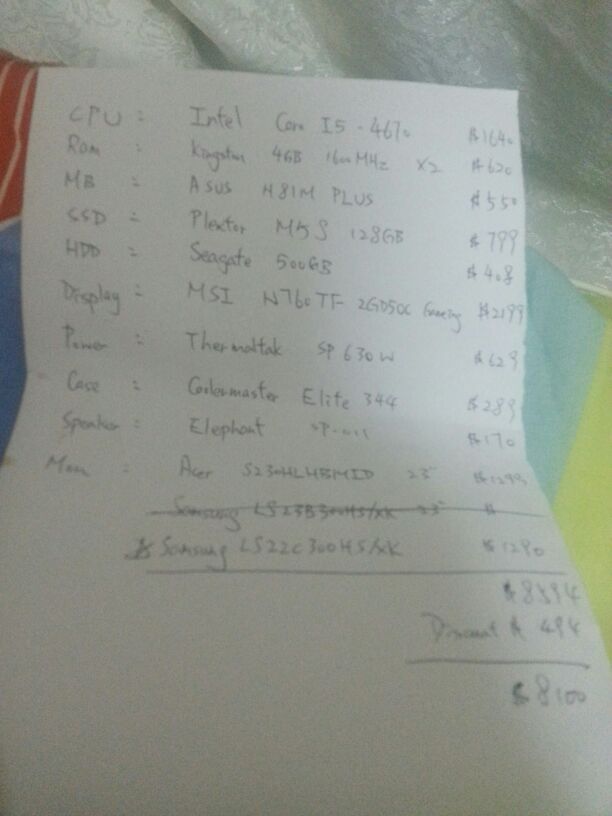 CPU : Intel Core I5 - 4670 $1640
Ram : Kingston 4GB 1600MHz x2 $620
MB : ASUS H81M PLUS $550
SSD : Plextor M5S 128GB $799
HDD : Seagate 500GB $408
Display : MSI N760 TF 2GD5OC Gaming $2199
Power : Thermaltak SP 630W $629
Case : Coolermaster Elite 344 $289
Speaker : Elephant $170
Mon : Acer 23" $1299
Samsung LS23B300HS/XK 23" $
Samsung LS22C300HS/XK $1290
$8594
Discount $ 494
$8100